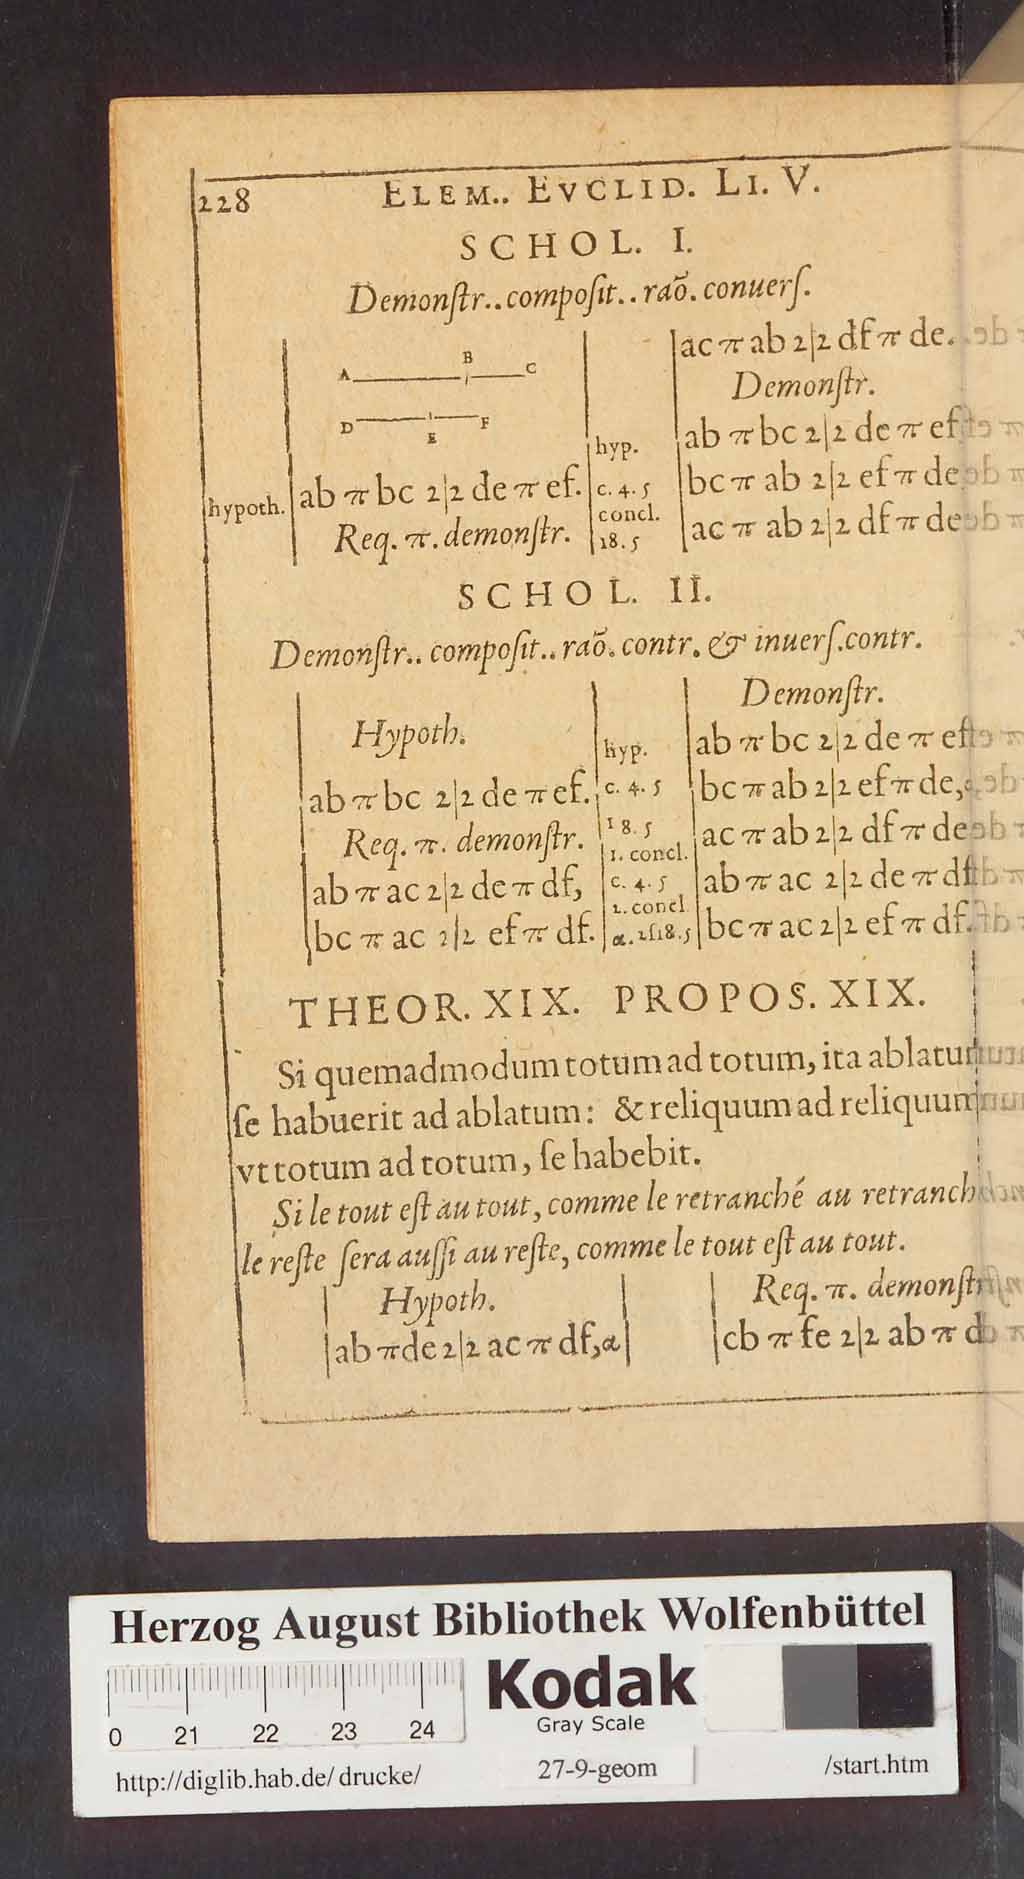 228 ELEM.. EVCLID. LI. V.
SCHOL. I.
Demonſtr..compoſit..raõ.conuerſ.
A B C
D E F
hypoth. ab π bc 2|2 de π ef.
Req. π. demonſtr.
ac π ab 2|2 df π de.
Demonſtr.
hyp. ab π bc 2|2 de π ef
c. 4. 5 bc π ab 2|2 ef π de
concl.
18. 5 ac π ab 2|2 df π de
SCHOL. II.
Demonſtr.. compoſit.. raõ. contr. & inuerſ.contr.
Hypoth.
ab π bc 2|2 de π ef.
Req. π. demonſtr.
ab π ac 2|2 de π df,
bc π ac 2|2 ef π df.
Demonſtr.
hyp. ab π bc 2|2 de π ef
c. 4. 5 bc π ab 2|2 ef π de,
18. 5 ac π ab 2|2 df π de
1. concl.
c. 4. 5 ab π ac 2|2 de π df
2. concl.
α. 2ſ18.5 bc π ac 2|2 ef π df.
THEOR. XIX. PROPOS. XIX.
Si quemadmodum totum ad totum, ita ablatum
ſe habuerit ad ablatum: & reliquum ad reliquum
vt totum ad totum, ſe habebit.
Si le tout eſt au tout, comme le retranché au retranch
le reſte ſera auſſi au reſte, comme le tout eſt au tout.
Hypoth.
ab π de 2|2 ac π df, α
Req. π. demonſtr
cb π fe 2|2 ab π d
Herzog August Bibliothek Wolfenbüttel
0 21 22 23 24
Kodak
Gray Scale
http://diglib.hab.de/drucke/ 27-9-geom /start.htm